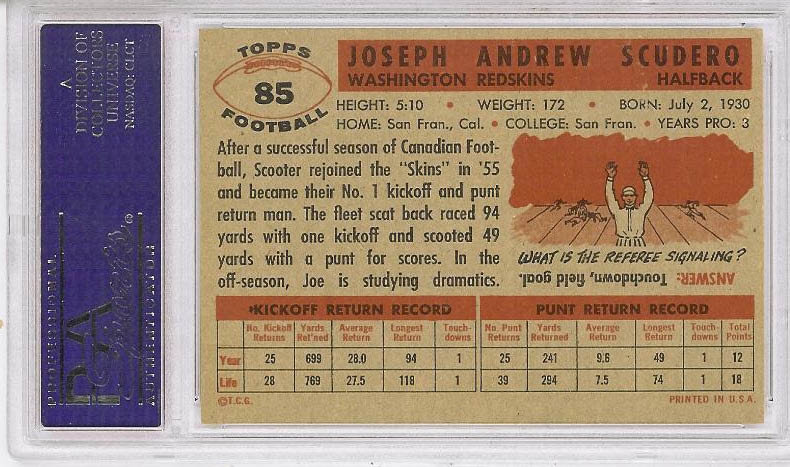 TOPPS
85
FOOTBALL
JOSEPH ANDREW SCUDERO
WASHINGTON REDSKINS HALFBACK
HEIGHT: 5:10 • WEIGHT: 172 • BORN: July 2, 1930
HOME: San Fran., Cal. • COLLEGE: San Fran. • YEARS PRO: 3
After a successful season of Canadian Foot-
ball, Scooter rejoined the "Skins" in '55
and became their No. 1 kickoff and punt
return man. The fleet scat back raced 94
yards with one kickoff and scooted 49
yards with a punt for scores. In the
off-season, Joe is studying dramatics.
WHAT IS THE REFEREE SIGNALING?
ANSWER: Touchdown, field goal.
KICKOFF RETURN RECORD PUNT RETURN RECORD
No. Kickoff Returns Yards Ret'ned Average Return Longest Return Touch-downs No. Punt Returns Yards Returned Average Return Longest Return Touch-downs Total Points
Year 25 699 28.0 94 1 25 241 9.6 49 1 12
Life 28 769 27.5 118 1 39 294 7.5 74 1 18
©T.C.G. PRINTED IN U.S.A.
A
DIVISION OF
COLLECTORS
UNIVERSE
NASDAQ: CLCT
PSA
PROFESSIONAL
AUTHENTICATOR